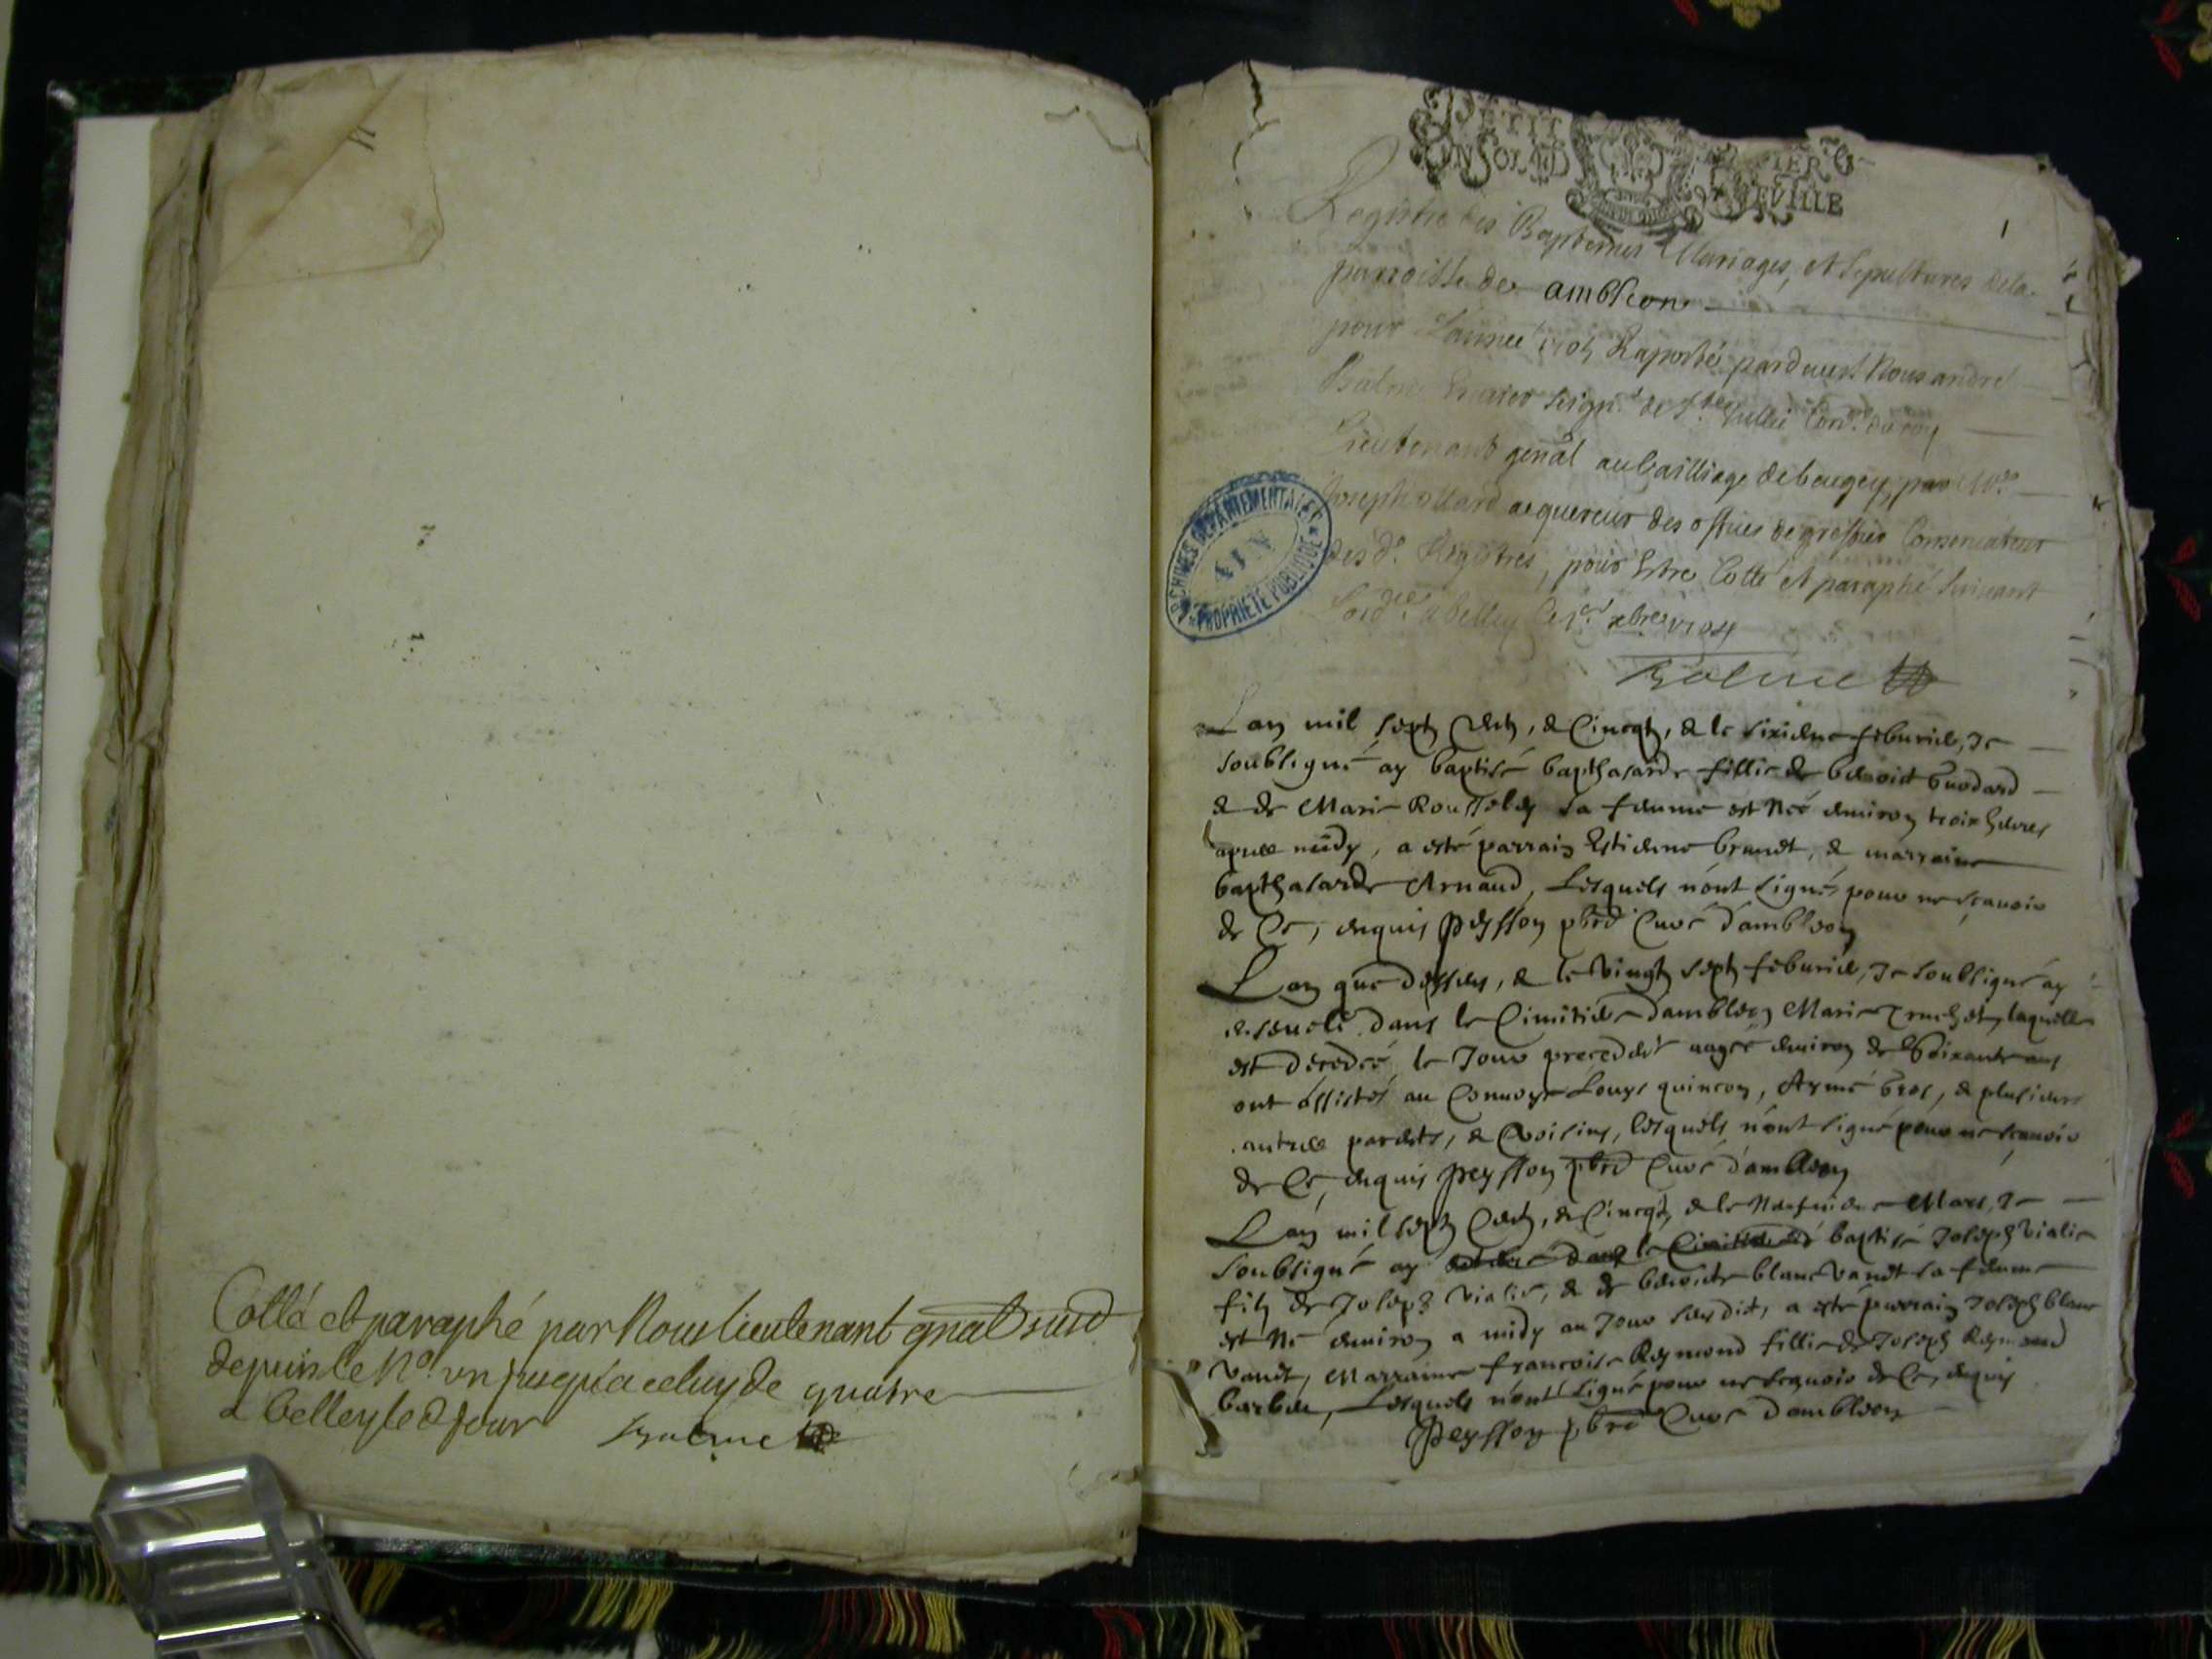 Cotté et paraphé par Nous lieutenant gnal susd
depuis le No. un jusqu'a celuy de quatre
a belley led jour Balme
PETIT PAPIER
UN SOL 
1
Registre des Baptemes Mariages, et Sepultures dela
parroisse de ambleon
pour l'année 1705 Raporté pardevant Nous andré
Balme seignr de Ste Jullie Conr du roy
Lieutenant genâl au bailliage de beugey, par
Joseph acquereur des offices de greffier Conservateur
des ds Registres, pour Estre Cotté et paraphé suivant
lordce a belley le 1er xbre 1704
Balme
ARCHIVES DEPARTEMENTALES
AIN
PROPRIETE PUBLIQUE
Lan mil sept Cent, & Cincq, & le sixieme feburier, Je
soubsigné ay baptisé bapthasarde fillie de benoist
& de Marie sa femme est Née environ trois heures
apres midy, a esté parrain Estienne brunet, & marraine
bapthasarde Arnaud, Lesquels n'ont signé pour ne scavoir
de Ce, enquis Peysson pbre Curé d'ambleon
Lan que dessus, & le vingt sept feburier, Je soubsigné ay
enseveli dans le Cimitiere dambleon Marie Truchet, laquelle
est decedée le Jour precedent aagée environ de soixante ans
ont assistés au Convoye Louys quincon, Aymé gros, & plusieurs
autres parents, & voisins, lesquels n'ont signé pour ne scavoir
de Ce, enquis Peysson pbre Curé d'ambleon
Lan mil sept Cent, & Cincq, & le Neufvieme Mars, Je
soubsigné ay baptisé Joseph vialie
fils de Joseph vialie, & de benoiste blanc vandt sa femme
est Né environ a midy au Jour susdit, a esté parrain Joseph blanc
vandt, Marraine francoise Reymond fillie de Joseph Reymond
barbier, Lesquels n'ont signé pour ne scavoir de Ce, enquis
Peysson pbre Curé d'ambleon